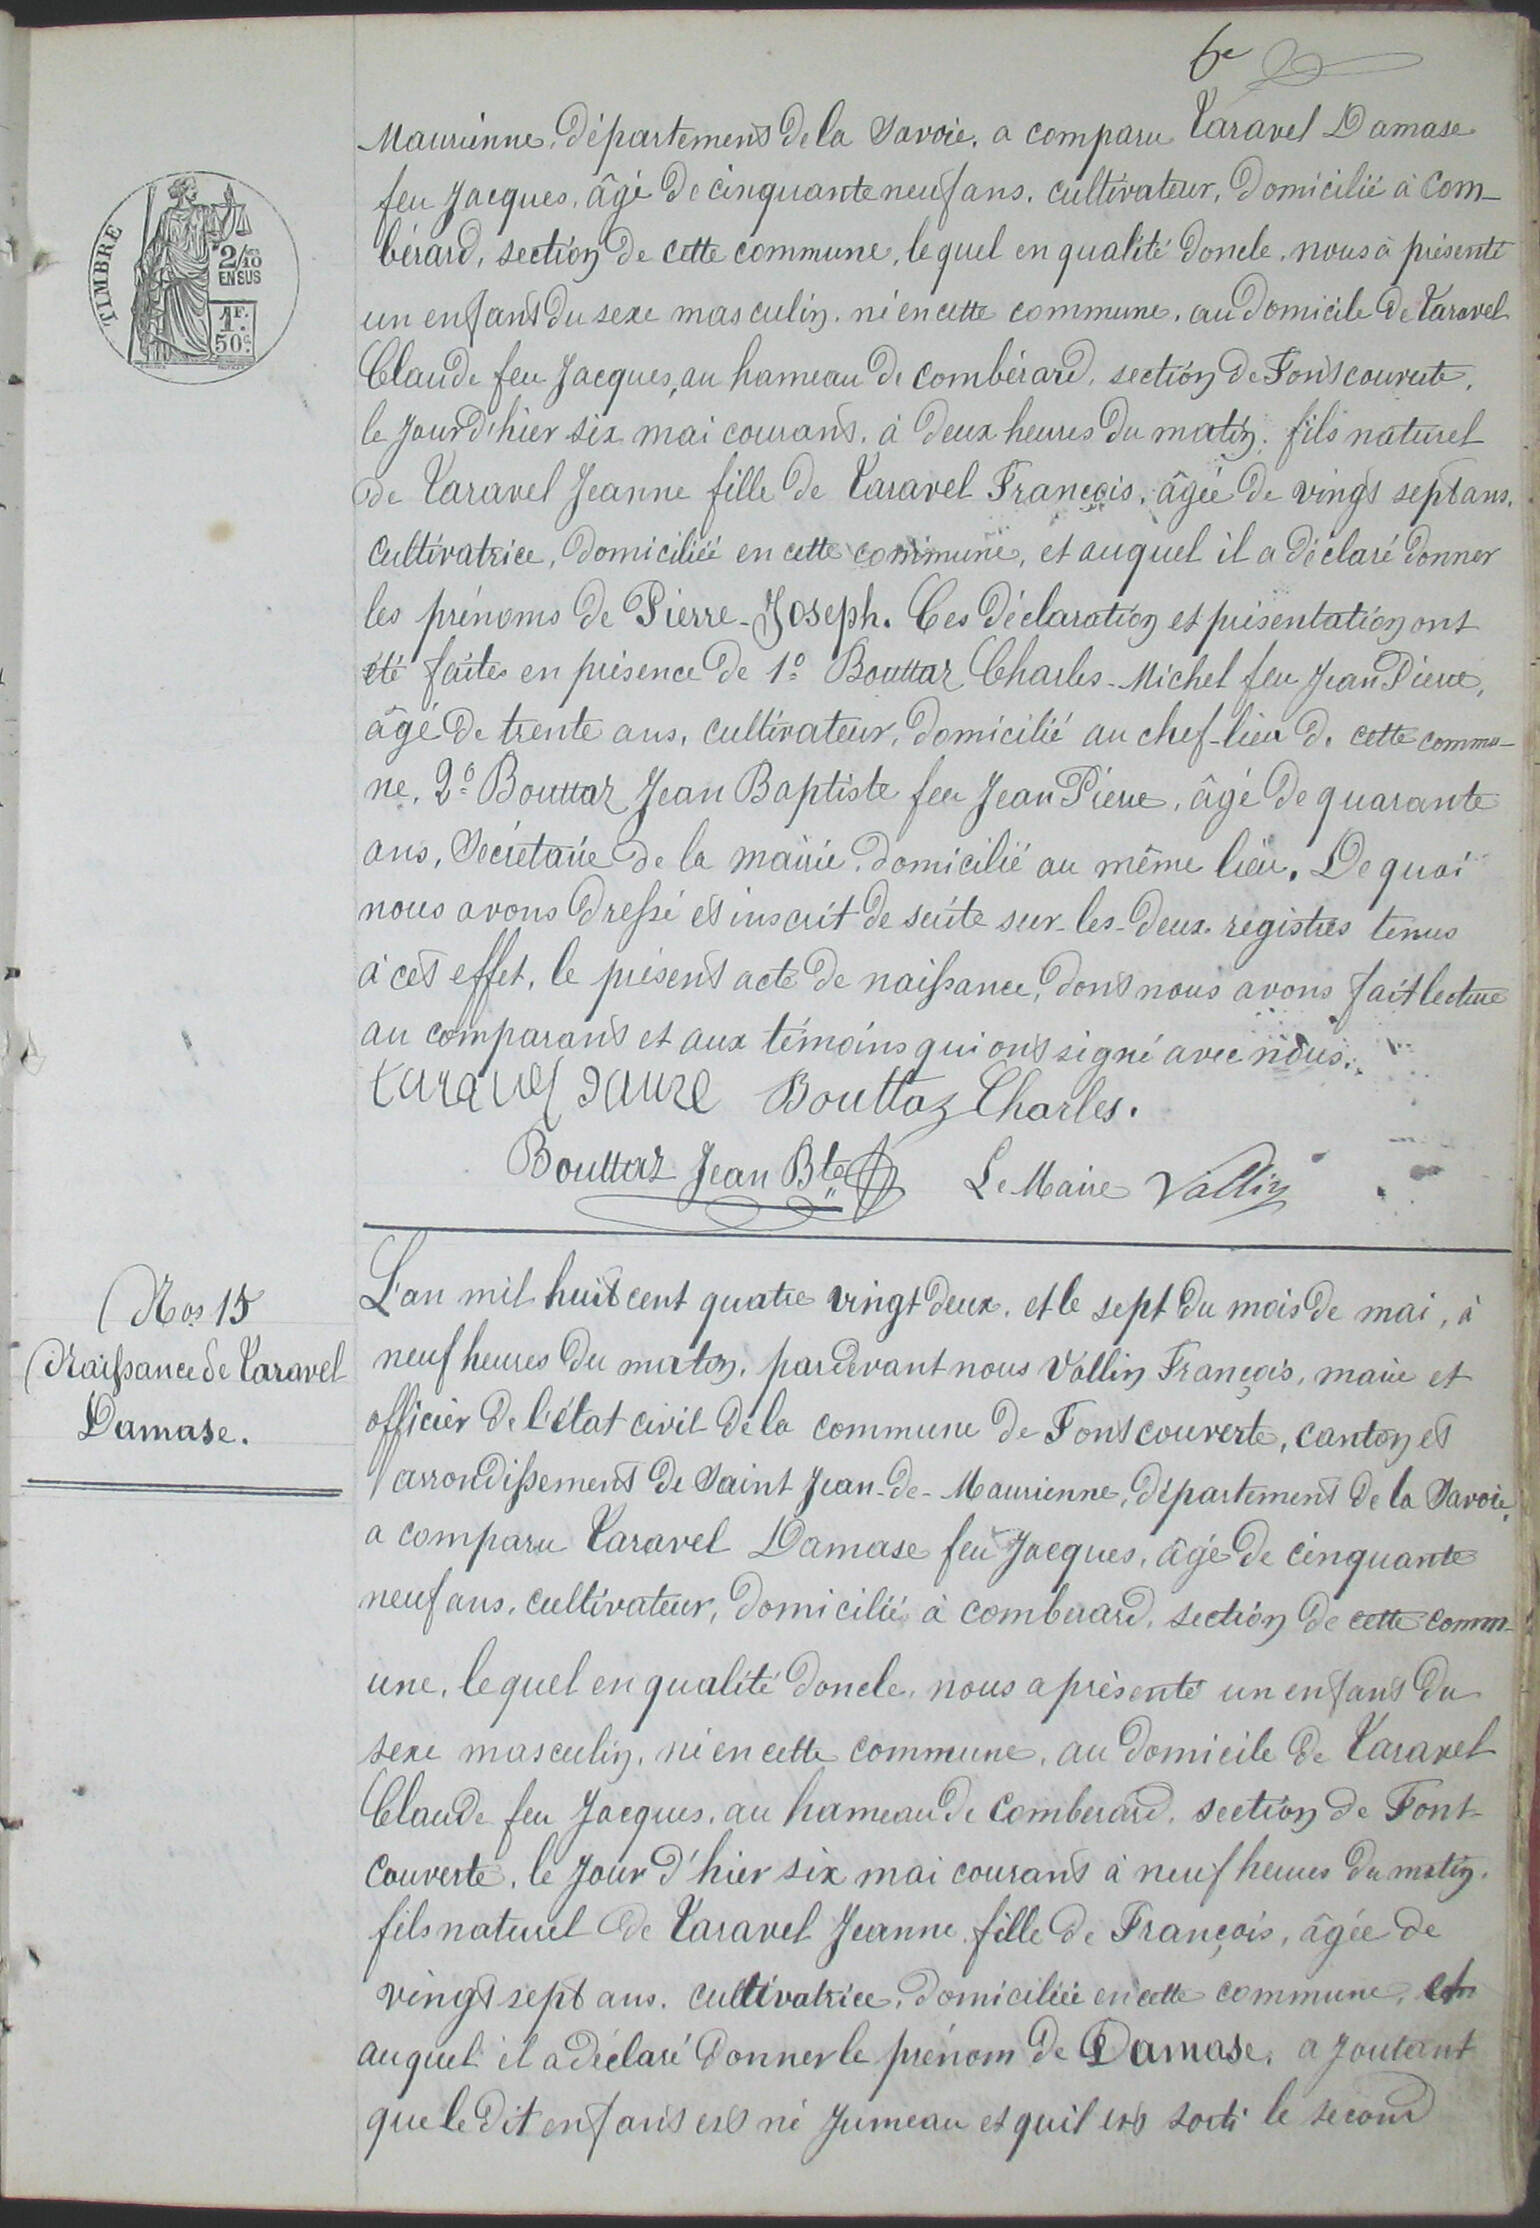 6e
TIMBRE
2/10
EN SUS
1F.
50c.
Maurienne, département de la Savoie, a comparu Taravel Damase
feu Jacques, âgé de cinquante neuf ans, cultivateur, domicilié à Com-
bérard, section de cette commune, le quel en qualité doncle, nous à présenté
un enfant du sexe masculin, né en cette commune, au domicile de Taravel
Claude feu Jacques, au hameau de combérard, section de Fontcouverte,
le jour d'hier six mai courant, à deux heures du matin, fils naturel
de Taravel Jeanne fille de Taravel François, âgée de vingt sept ans,
cultivatrice, domiciliée en cette commune, et auquel il a déclaré donner
les prénoms de Pierre-Joseph. Ces déclaration et présentation ont
été faites en présence de 1o Bouttaz Charles-Michel feu Jean Pierre,
âgé de trente ans, cultivateur, domicilié au chef-lieu de cette commu-
ne, 2o Bouttaz Jean Baptiste feu Jean Pierre, âgé de quarante
ans, Secrétaire de la mairie, domicilié au même lieu. De quoi
nous avons dressé et inscrit de suite sur les deux registres tenus
à cet effet, le présent acte de naissance, dont nous avons fait lecture
au comparant et aux témoins qui ont signé avec nous.
taravel Bouttaz Charles.
Bouttaz Jean Bte Le Maire Vallin
Nos 15
Naissance de Taravel
Damase.
L'an mil huit cent quatre vingt deux, et le sept du mois de mai, à
neuf heures du matin, pardevant nous Vallin François, maire et
officier de l'état civil de la commune de Fontcouverte, canton et
arrondissement de Saint Jean-de-Maurienne, département de la Savoie,
a comparu Taravel Damase feu Jacques, âgé de cinquante
neuf ans, cultivateur, domicilié à comberard, section de cette comm-
une, le quel en qualité doncle, nous a présenté un enfant du
sexe masculin, né en cette commune, au domicile de Taravel
Claude feu Jacques, au hameau de Comberard, section de Font-
couverte, le jour d'hier six mai courant à neuf heures du matin,
fils naturel de Taravel Jeanne fille de François, âgée de
vingt sept ans, cultivatrice, domiciliée en cette commune, et
auquel il a déclaré donner le prénom de Damase, ajoutant
que le dit enfant est né Jumeau et quil est sorti le second